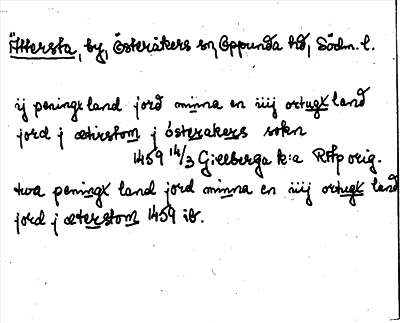 Ättersta, by, Österåkers sn, Oppunda hd, Södm. l.
ij peningx land jord minna en iiij ortugx land
jord j ætirstom j österakers sokn
1459 14/3 Gillberga k:a RAp orig.
twa peningx land jord minna en iiij ortugx land
jord j æterstom 1459 ib.